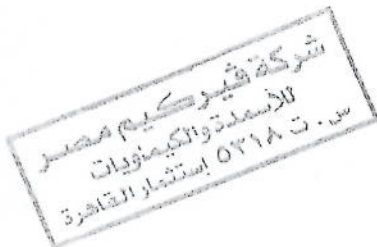 شركة فيركيم مصر
للأسمدة والكيماويات
س . ت ٥٣١٨ إستثمار القاهرة